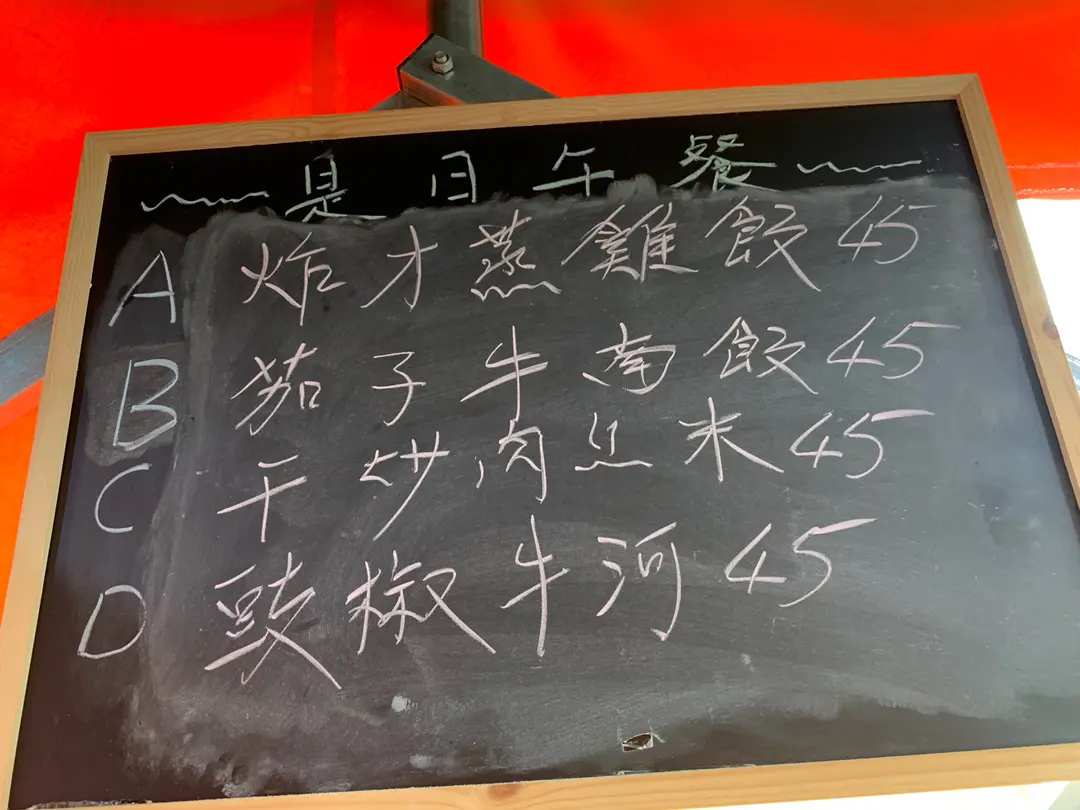 是日午餐
A 炸才蒸雞飯 45
B 茄子牛南飯 45
C 干炒肉丝米 45
D 豉椒牛河 45